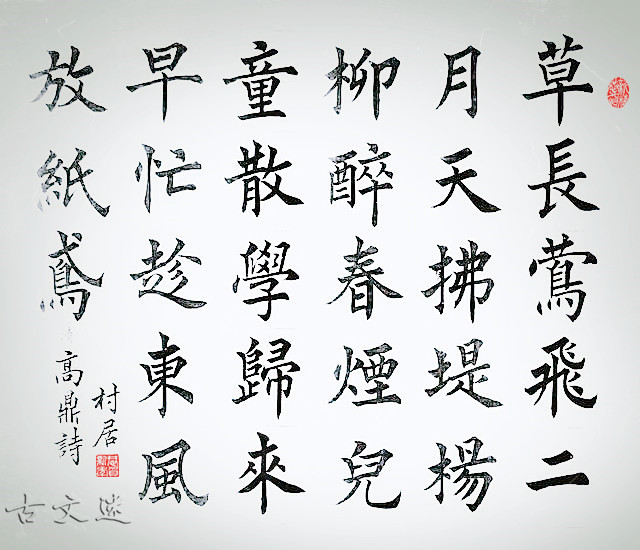 草長鶯飛二
月天拂堤楊
柳醉春煙兒
童散學歸來
早忙趁東風
放紙鳶
高鼎詩
村居
古文迷